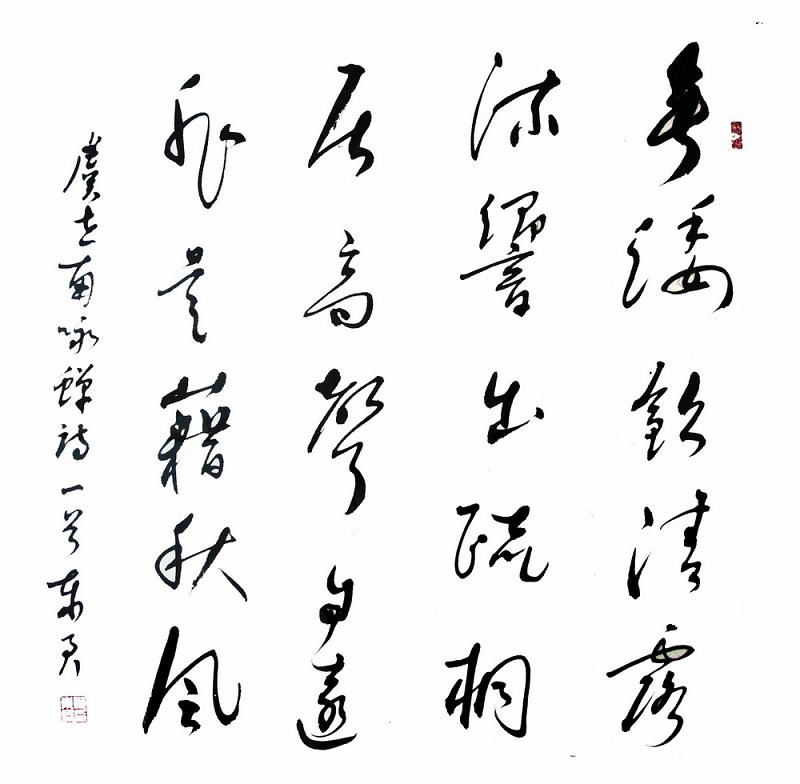 垂緌飲清露
流響出疏桐
居高聲自遠
非是藉秋風
虞世南咏蟬詩一首